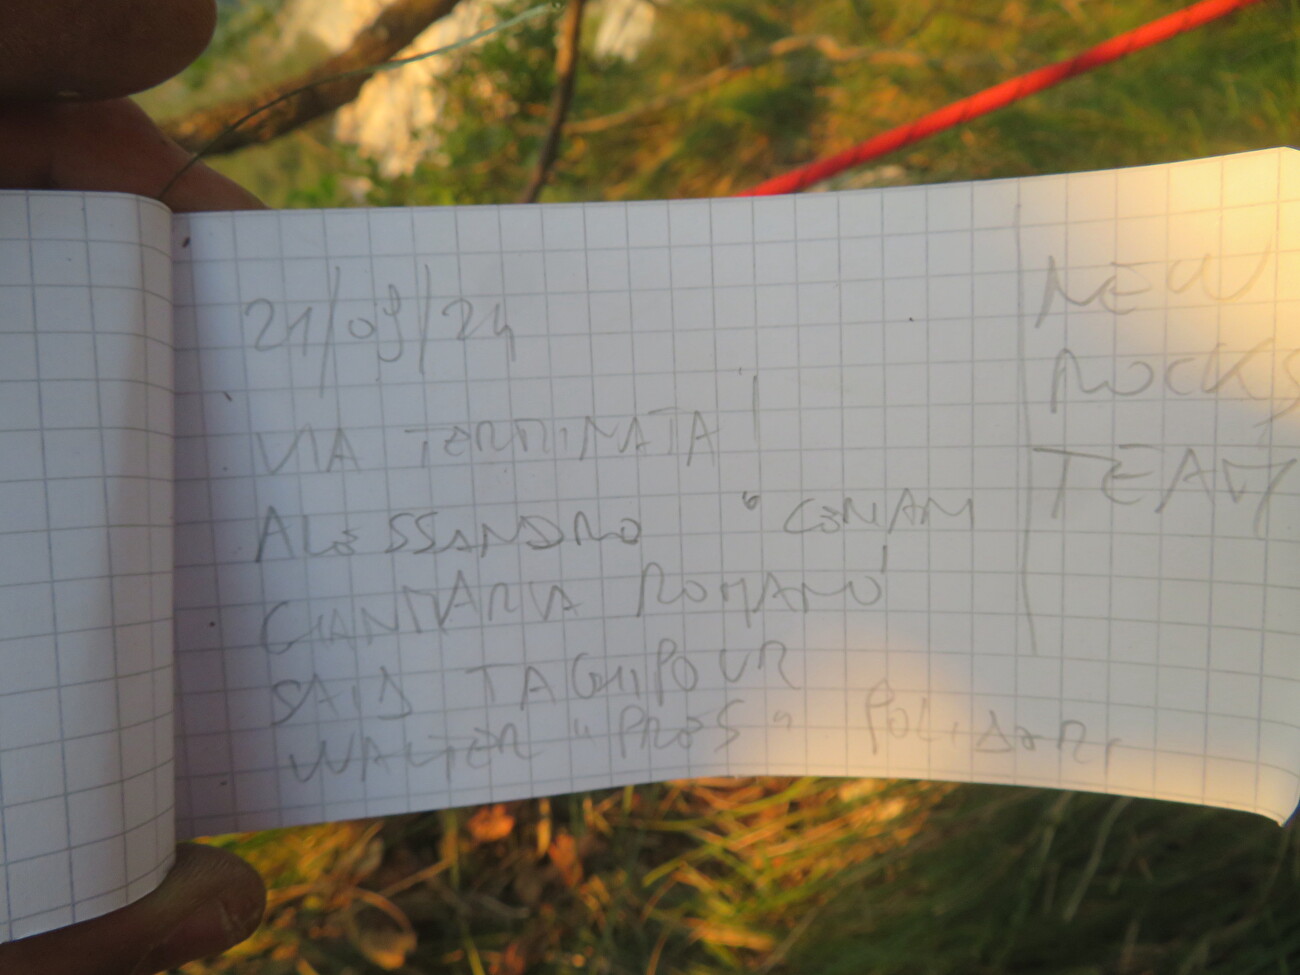 21/09/24
VIA TERMINATA!
ALESSANDRO "CENAM
GIANMARIA ROMANO'
SAID TAGHIPOUR
WALTER "PROS" POLIDORI
NEW
ROCKS
TEAM